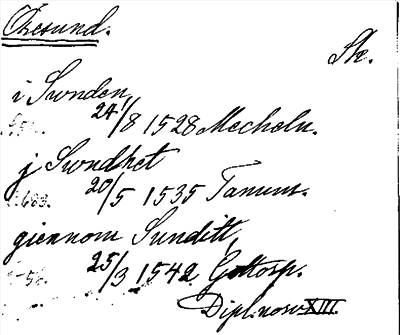 Øresund.
Sk.
i Swnden,
24/8 1528 Mecheln.
j Swndhet
20/5 1535 Tanum.
giennom Sunditt,
25/3 1542 Gottorp.
Dipl. norv. XIII.